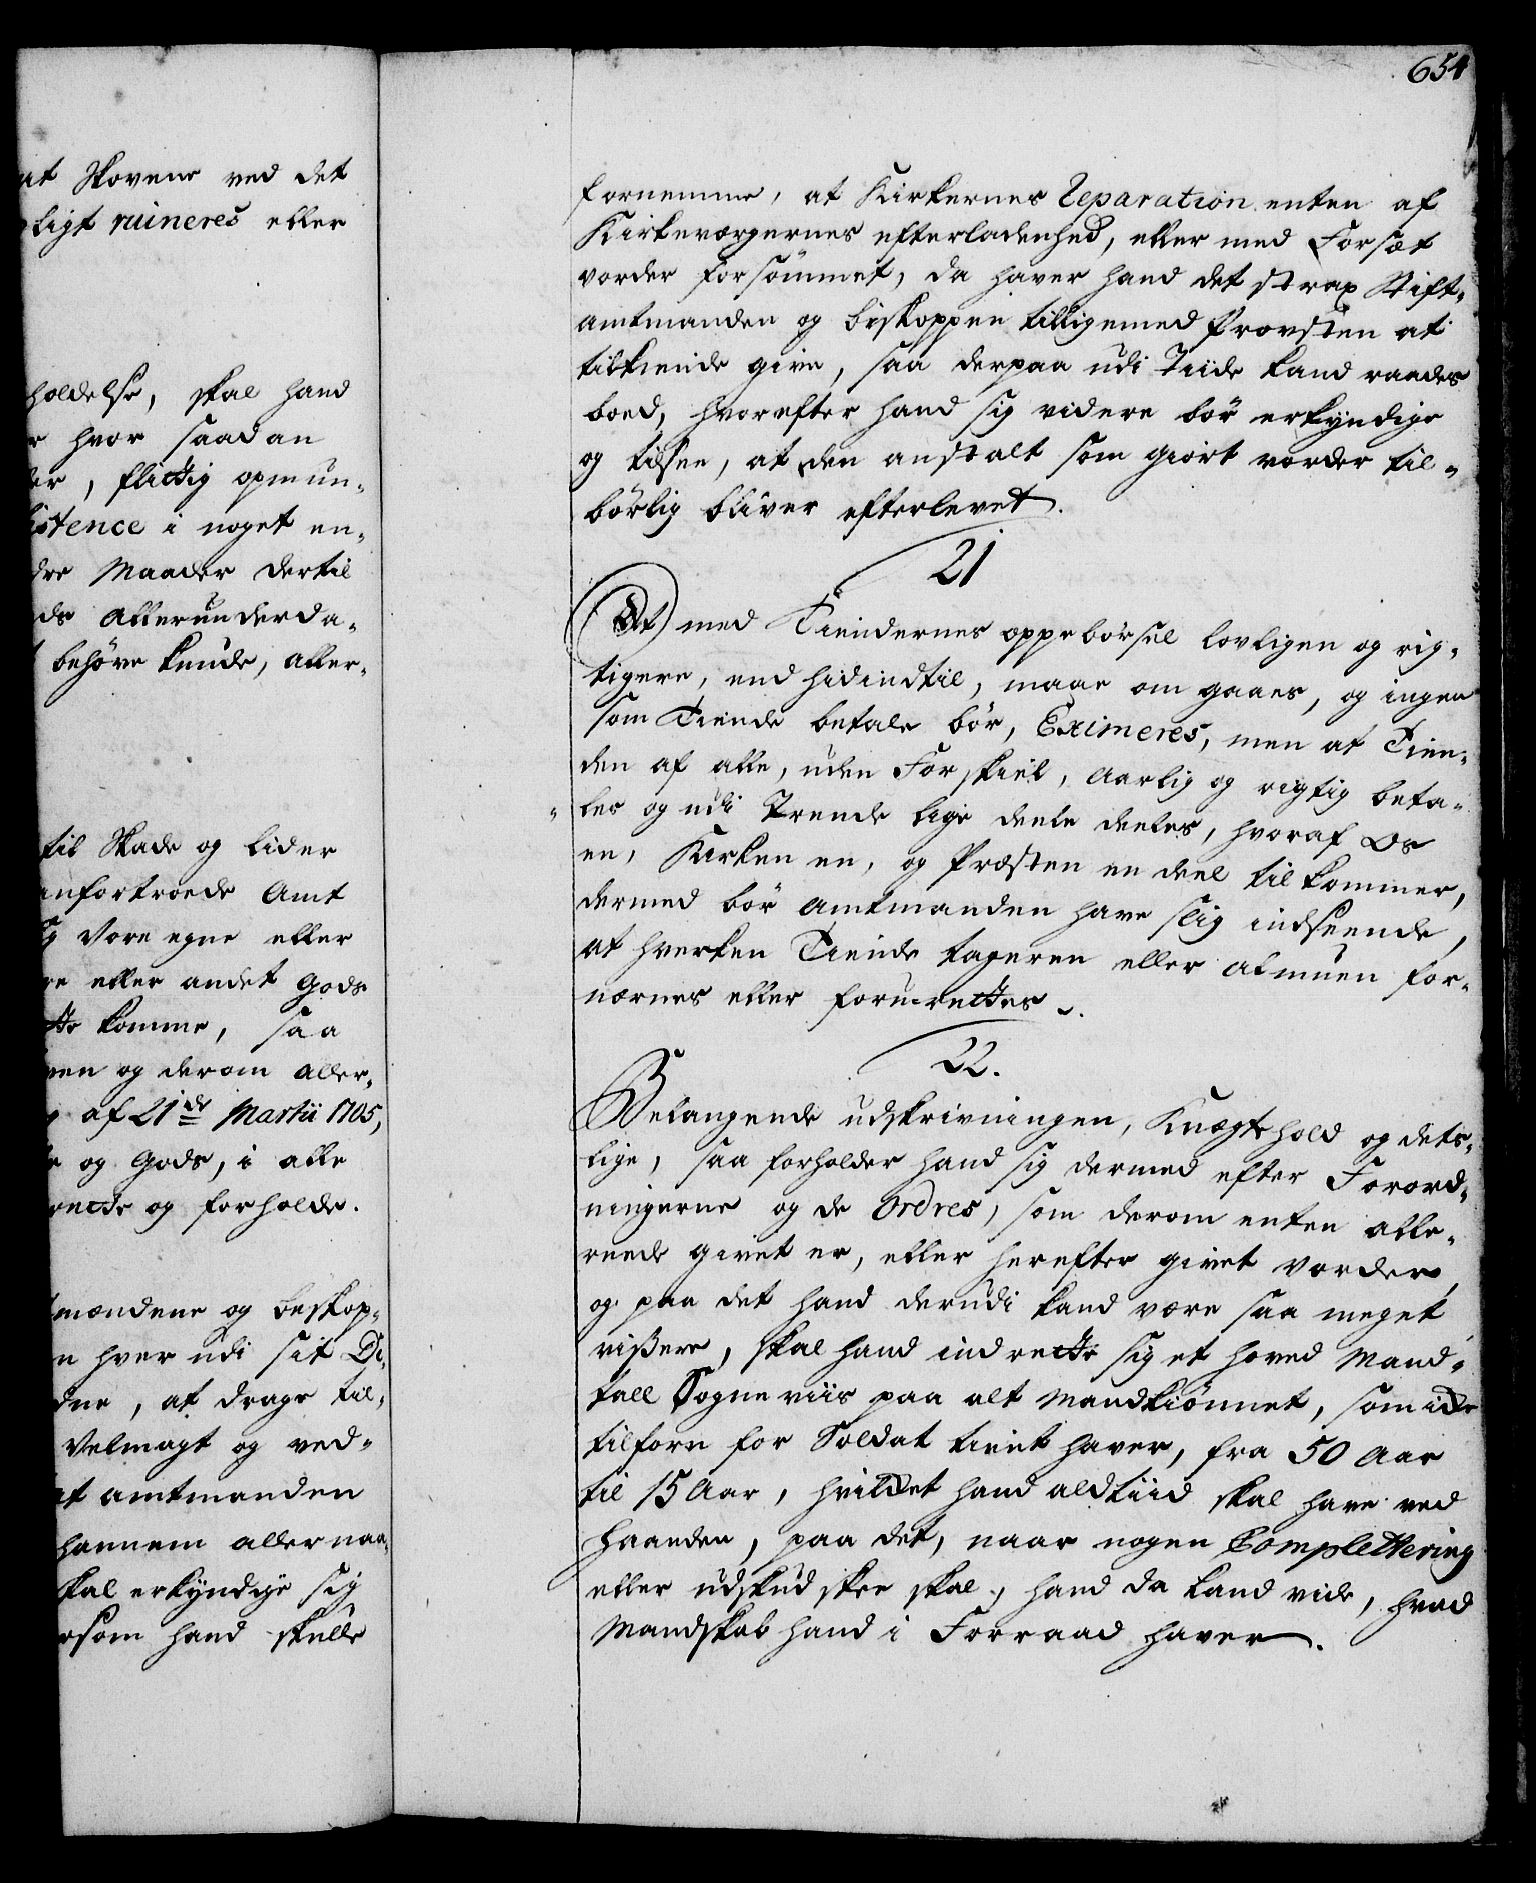 at Skovene ved det
ligt ruineres eller
holdelse, skal hand
hvor saadan
er, flittig opmun-
istence i noget en-
dre Maader dertil
ds Allerunderda-
behöve kunde, aller-
til Skade og lider
anfortroede Amt
Vore egne eller
re eller andet Gods
komme, saa
men og derom aller-
af 21de Martii 1705,
og Gods, i alle
rette og forholde.
mændene og beskop-
n hver udi sit Di-
dne, at drage til-
Velmagt og ved-
at amtmanden
hannem allernaa-
skal erkyndige sig
rsom hand skulle
654
fornemme, at Kirkernes Reparation enten af
Kirkeværgernes efterladenhed, eller med Forsæt
vorder forsömmet, da haver hand det strax Stift-
amtmanden og biskoppen tilligemed Provsten at
tilkiende give, saa derpaa udi Tiide kand raades
boed, hvorefter hand sig videre bör erkyndige
og tilsee, at den anstalt som giort vorder til-
börlig bliver efterlevet.
21
At med Tiendernes oppebörsel lovligen og rig-
tigere, end hidindtil, maae om gaaes, og ingen
som Tiende betale bör, Eximeres, men at Tien-
den af alle, uden Forskiel, aarlig og rigtig beta-
les og udi Trende lige deele deeles, hvoraf Os
en, Kirken en, og Præsten en deel tilkommer,
dermed bör Amtmanden have slig indseende,
at hverken Tiende tageren eller Almuen for-
nærmes eller foruretttes.
22.
Belangende udskrivningen, Knægtehold og dets-
lige, saa forholder hand sig dermed efter Forord-
ningerne og de Ordres, som derom enten alle-
reede givet er, eller herefter givet vorder,
og paa det hand derudi kand være saa meget
vißere, skal hand indrette sig et hoved Mand-
tall Sogneviis paa alt Mandkiönnet, som icke
tilforn for Soldat tient haver, fra 50 Aar
til 15 Aar, hvilcket hand aldtiid skal have ved
Haanden, paa det, naar nogen Complettering
eller udskud skee skal, hand da kand vide, hvad
Mandskab hand i Forraad haver.